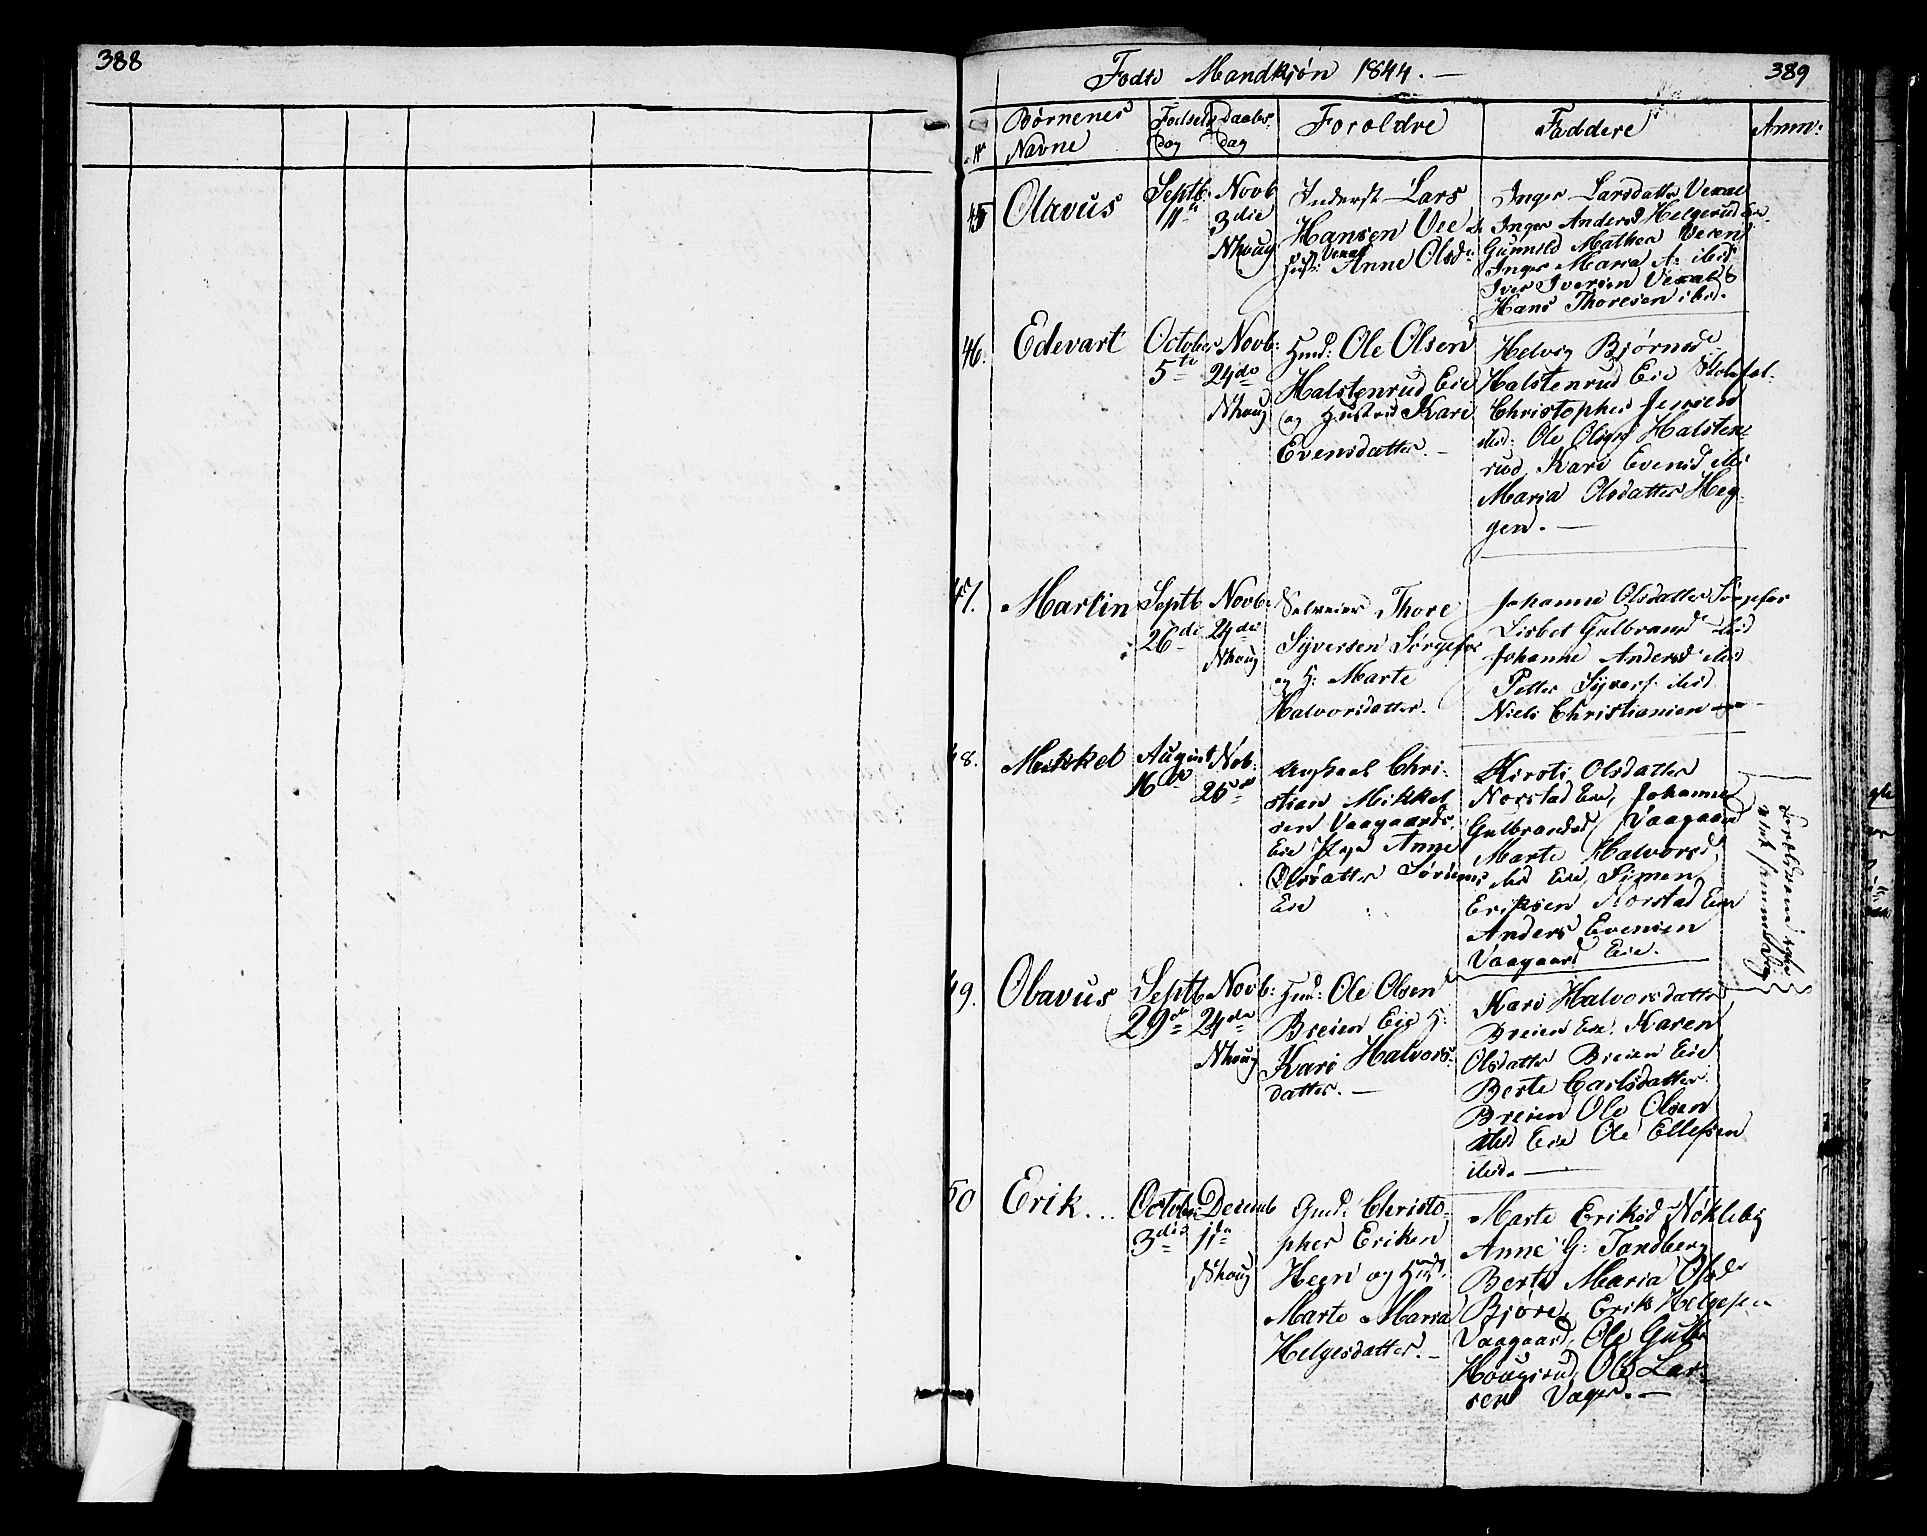 388
Fødte Mandkjøn 1844. —
389
No
Børnenes Navne
Fødsels dag
Daabs dag
Forældre
Faddere
Anm:
45
Olavus
Septb: 11te
Novb 3die Nhoug
Inderst Lars
Hansen Vee
Hust: Anne Olsd:
Inger Larsdatter
Inger Andersd Helgerud
Gunnild
Inger Maria A: ibid
Iver Iversen
Hans Thoresen ibd.
46.
Edevart
October 5te
Novb: 24de Nhoug
Hmd: Ole Olsen
Halstenrud Eie
og Hustru Kari
Evensdatter. —
Helvig Bjørnsd
Halstenrud Eie
Christopher Jensen
ibd: Ole Olsen Halsten-
rud, Kari Evensd ibd
Maria Olsdatter Heg-
gen. —
47.
Martin
Septb 26de
Novb: 24de Nhoug
Selveier Thore
Syversen Sørgefos
og H: Marte
Halvorsdatter.
Johanne Olsdatter Sørgefos
Lisbet Gulbrandsd ibid
Johanne Andersd ibid
Petter Syvers: ibid
Niels Christiansen
48.
Mikkel
August 16de
Nob: 25de
Ungkarl Chri-
stian Mikkel
sen Vaagaards
Eie Pige Anne
Olsdatter
Eie
Kirsti Olsdatter
Norstad Eie, Johanne
Gulbrandsd, Vaagaard
Marte Halvorsd,
ibd Eie, Simen
Eriksen Norstad Eie
Anders Evensen
Vaagaard Eie.
49.
Olavus
Septb 29de
Novb: 24de Nhoug
Hmd: Ole Olsen
Breien Eie H:
Kari Halvors-
datter. —
Kari Halvorsdatter
Breien Eie, Karen
Olsdatter Breien Eie
Berte Carlsdatter
Breien Ole Olsen
ibid Eie Ole Ellefsen
ibid. —
50
Erik..
October 3die
Decemb 1te Nhoug
Gmd: Christo-
pher Eriksen
Heen og Hust
Marte Maria
Helgesdatter. —
Marte Eriksd Nøkleby
Anne G: Tandberg
Berte Maria Olsdr
Bjøre, Erik Helgesen
Vaagaard, Ole Gulbr
Hougsrud, Ole Lar-
sen Vager. —